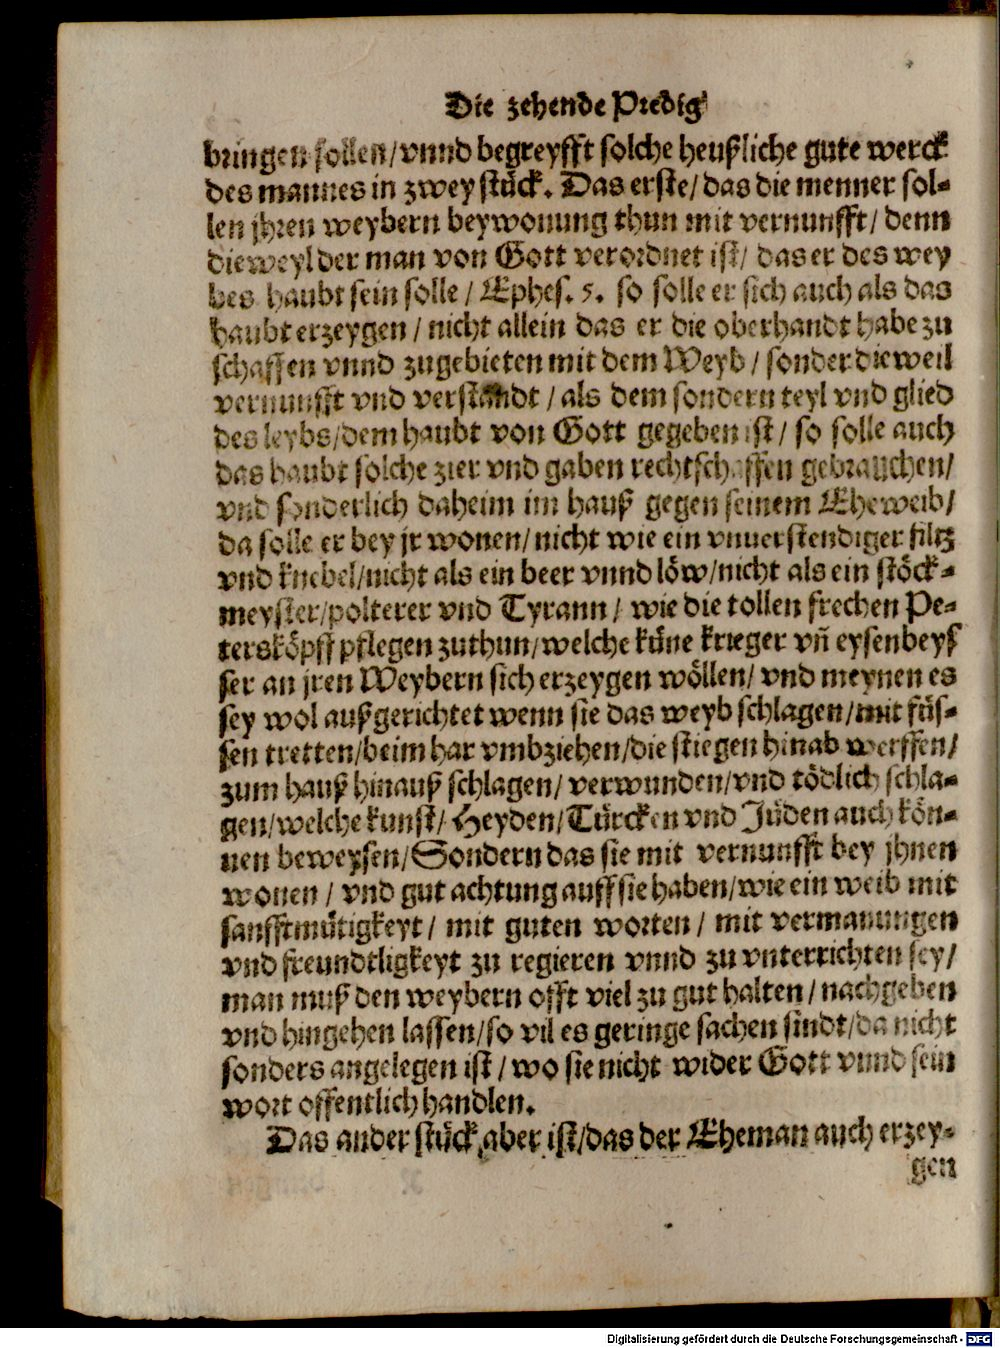 Die zehende Predig
bringen sollen/vnnd begreyfft solche heußliche gute werck
des mannes in zwey stück. Das erste/das die menner sol-
len jhren weybern beywonung thun mit vernunfft/denn
dieweyl der man von Gott verordnet ist/das er des wey
bes haubt sein solle/Ephes. 5. so solle er sich auch als das
haubt erzeygen/nicht allein das er die oberhandt habe zu
schaffen vnnd zugebieten mit dem Weyb/sonder dieweil
vernunfft vnd verstandt/als dem sondern teyl vnd glied
des leybs/dem haubt von Gott gegeben ist/so solle auch
das haubt solche zier vnd gaben rechtschaffen gebrauchen/
vnd sonderlich daheim im hauß gegen seinem Eheweib/
da solle er bey jr wonen/nicht wie ein vnuerstendiger filtz
vnd knebel/nicht als ein beer vnnd löw/nicht als ein stöck-
meyster/polterer vnd Tyrann/wie die tollen frechen Pe-
tersköpff pflegen zuthun/welche küne krieger vñ eysenbeys
ser an jren Weybern sich erzeygen wöllen/vnd meynen es
sey wol außgerichtet wenn sie das weyb schlagen/mit füs-
sen tretten/beim har vmbziehen/die stiegen hinab werffen/
zum hauß hinauß schlagen/verwunden/vnd tödlich schla-
gen/welche kunst/Heyden/Türcken vnd Jüden auch kön-
nen beweysen/Sondern das sie mit vernunfft bey jhnen
wonen/vnd gut achtung auff sie haben/wie ein weib mit
sanfftmütigkeyt/mit guten worten/mit vermanungen
vnd freundtligkeyt zu regieren vnnd zu vnterrichten sey/
man muß den weybern offt viel zu gut halten/nachgeben
vnd hingehen lassen/so vil es geringe sachen sindt/da nicht
sonders angelegen ist/wo sie nicht wider Gott vnnd sein
wort offentlich handlen.
Das ander stück aber ist/das der Eheman auch erzey-
gen
Digitalisierung gefördert durch die Deutsche Forschungsgemeinschaft - DFG